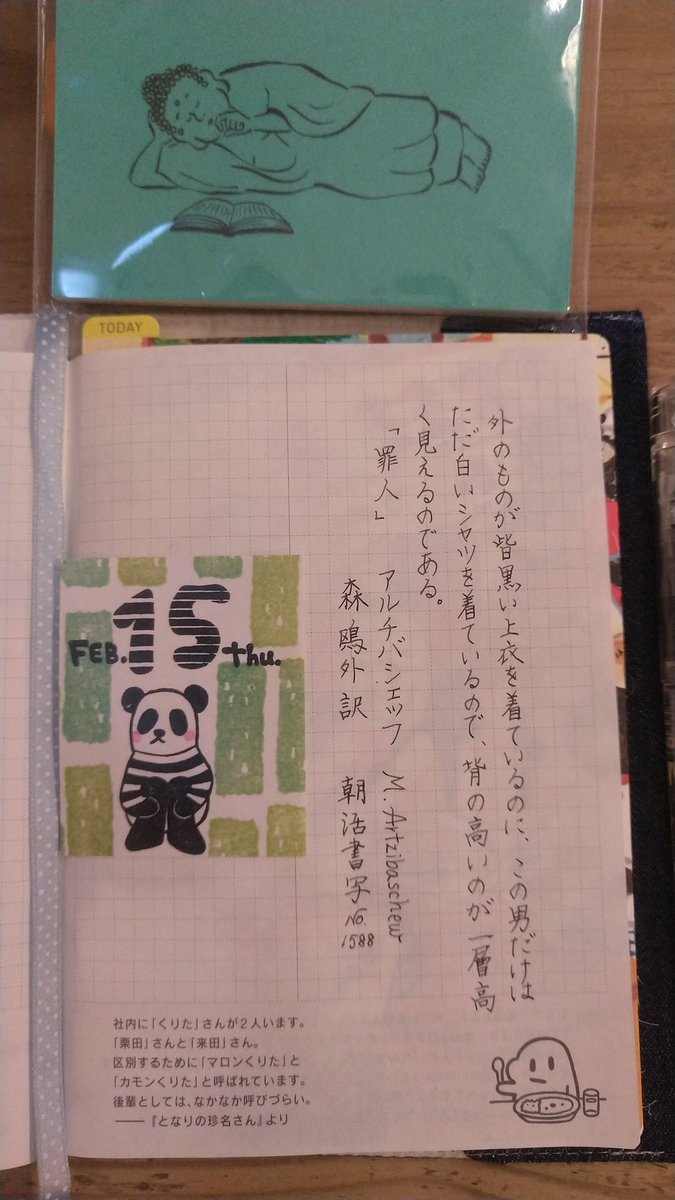 TODAY
外のものが皆黒い上衣を着ているのに、この男だけは
ただ白いシャツを着ているので、背の高いのが一層高
く見えるのである。
「罪人」 アルチバシェッフ M. Artzibaschew
森鴎外訳 朝活書写 No. 1588
FEB. 15 thu.
社内に「くりた」さんが2人います。
「栗田」さんと「来田」さん。
区別するために「マロンくりた」と
「カモンくりた」と呼ばれています。
後輩としては、なかなか呼びづらい。
——『となりの珍名さん』より